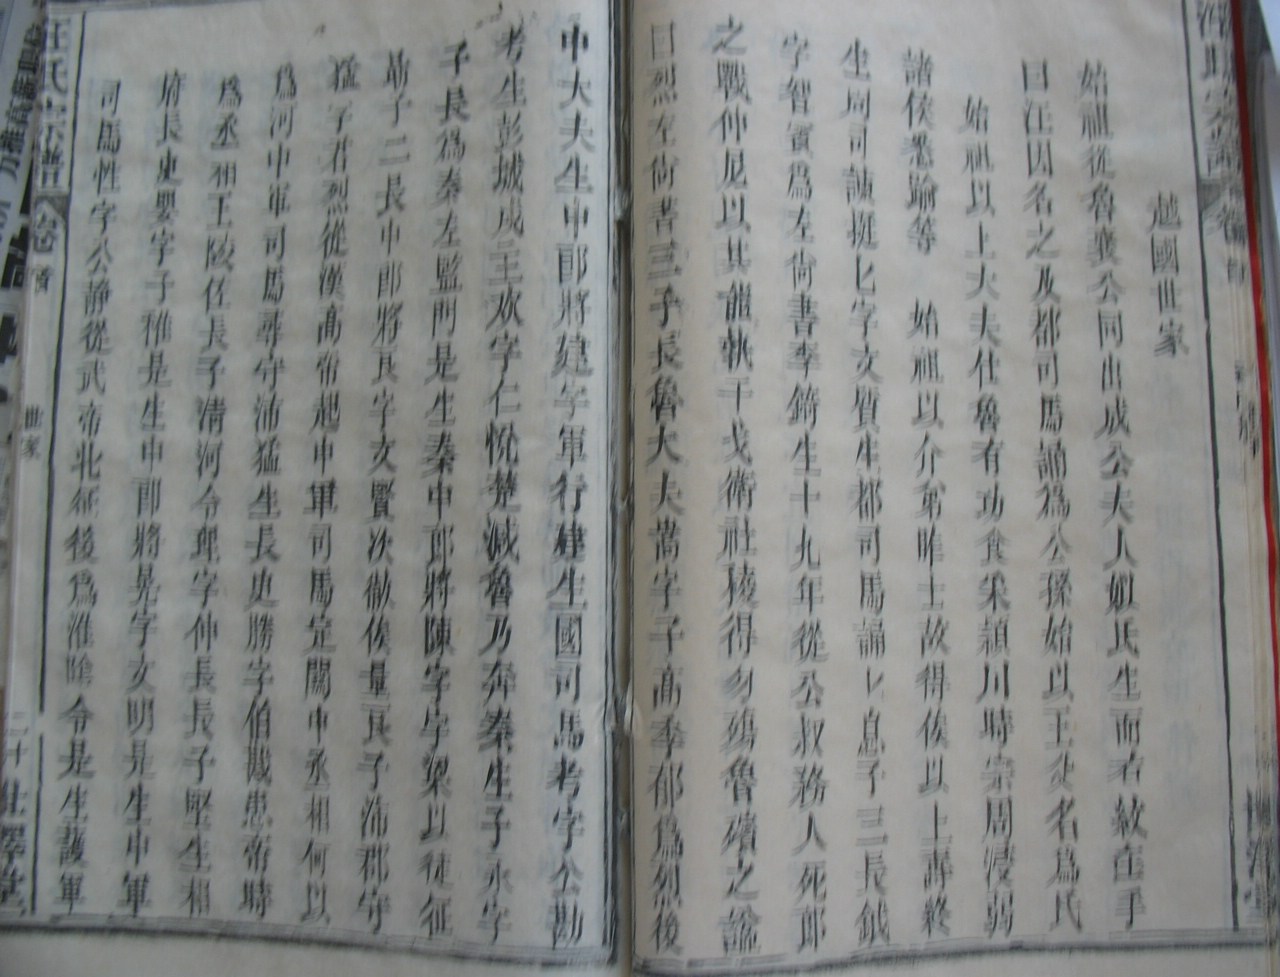 越國世家
始祖從魯襄公同出成公夫人姒氏生而有紋在手
曰汪因名之及都司馬誦為公孫始以王父名為氏
始祖以上大夫仕魯有功食采潁川時宗周浸弱
諸侯悉踰等 始祖以介弟胙土故得侯以上壽終
生周司誠挺匕字文質生都司馬誦匕息子三長鉞
字智賓為左尚書季錡生十九年從公叔務人死郎
之戰仲尼以其能執干戈衛社稷得勿殤魯殯之謚
曰烈左尚書三子長魯大夫蒿字子高季郁為烈後
中大夫生中郎將建字軍行建生國司馬考字公勘
考生彭城成王欢字仁悅楚滅魯乃奔秦生子永字
子長為秦左監門是生秦中郎將陳字字梁以從征
勒子二長中郎將瓦字文賢次徹侯量瓦子沛郡守
猛字君烈從漢高帝起中軍司馬定關中丞相何以
為河中軍司馬尋守沛猛生長史勝字伯機惠帝時
為丞相王陵佐長子清河令理字仲長長子堅生相
府長史嬰字子稚是生中郎將晃字文明是生中軍
司馬性字公静從武帝北征後為淮陰令是生護軍
汪氏宗譜 卷首 世家
二十